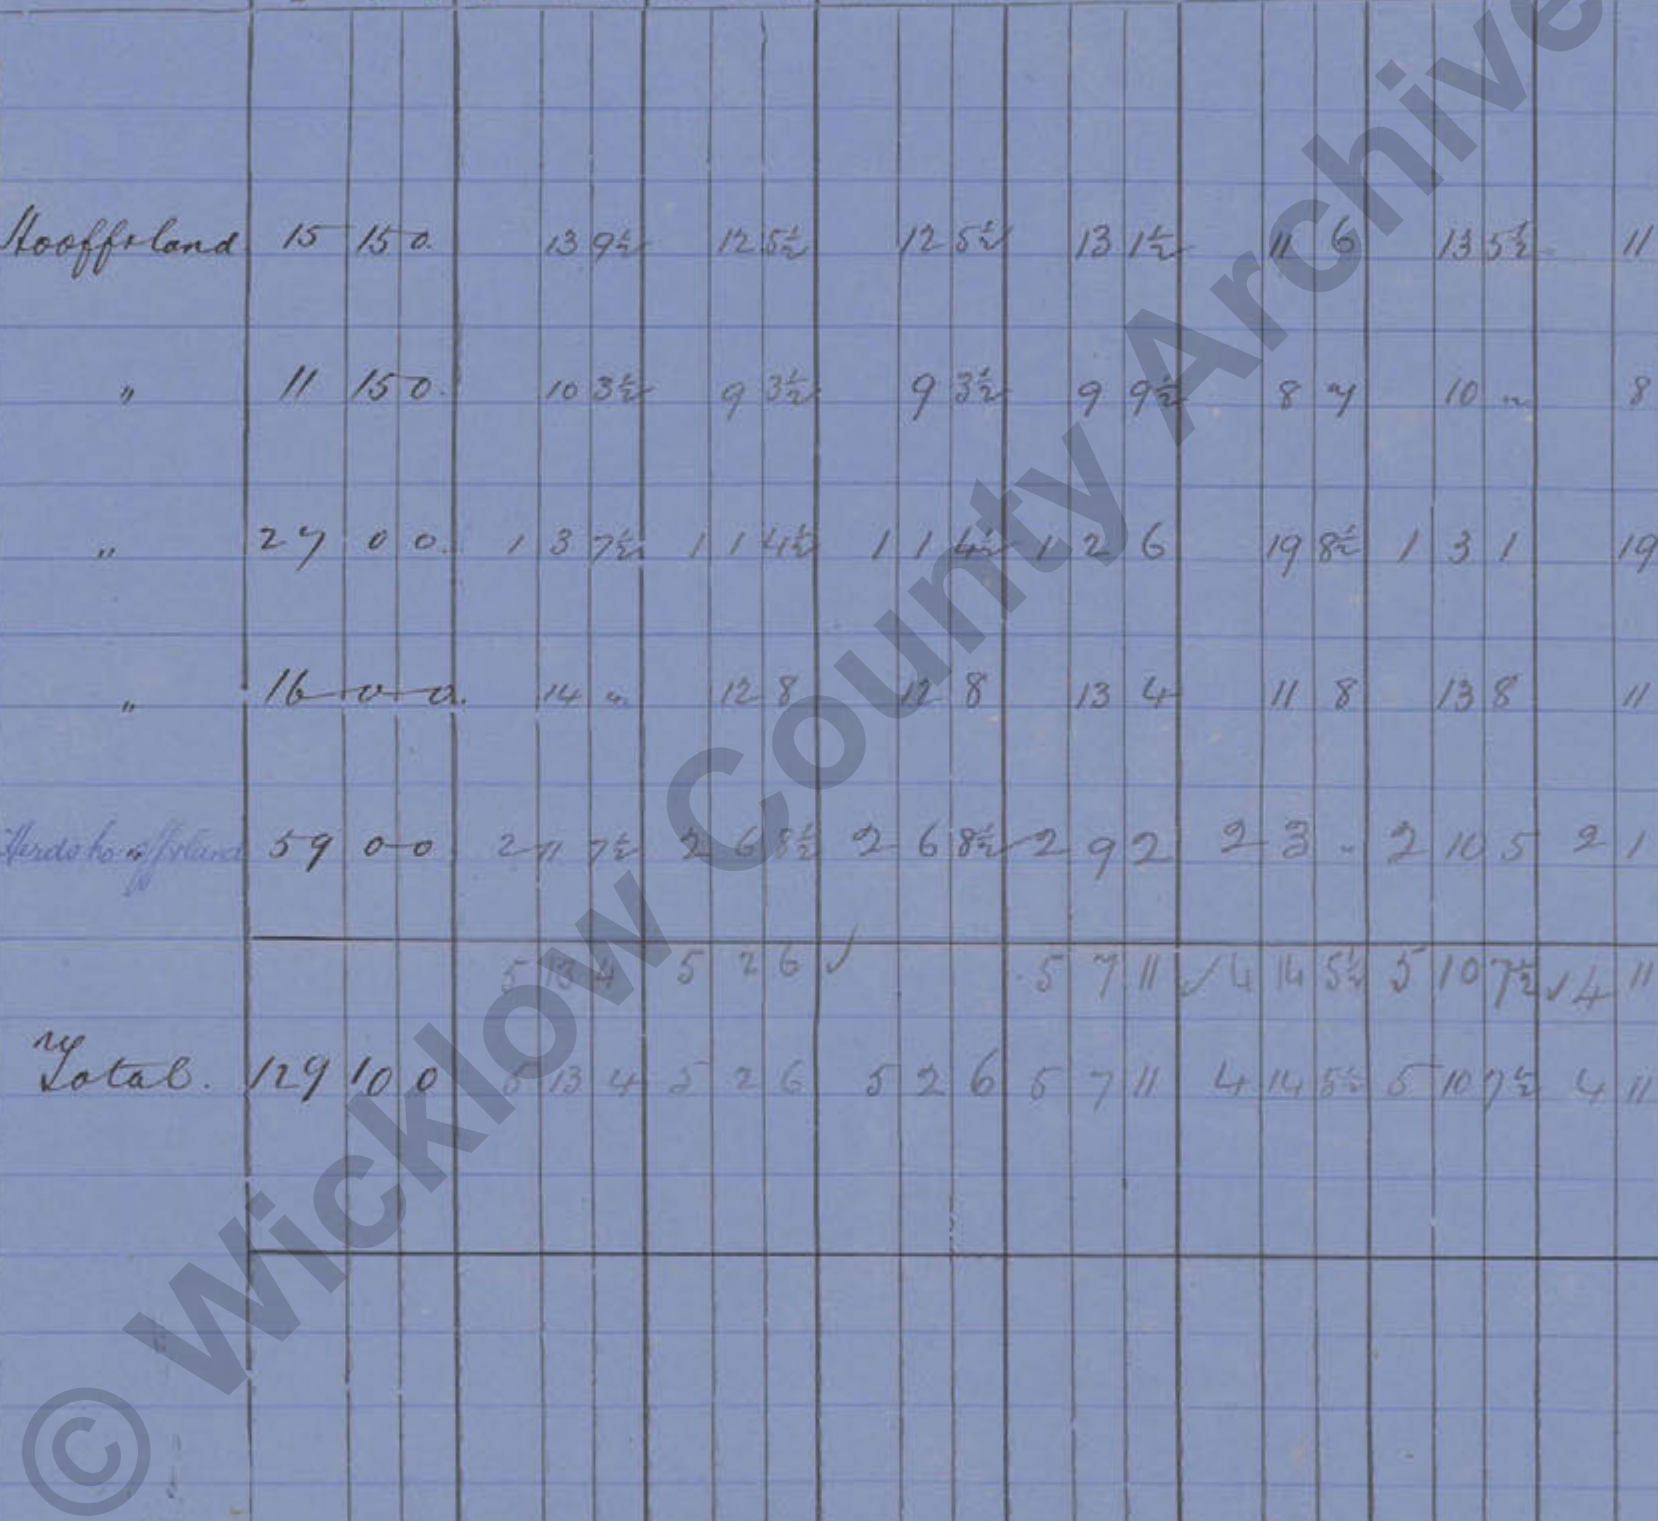 Ho off & land 15 15 0. 13 9½ 12 5½ 12 5½ 13 1½ 11 6 13 5½ 11
" 11 15 0. 10 3½ 9 3½ 9 3½ 9 9½ 8 7 10 " 8
" 27 0 0. 1 3 7½ 1 1 4½ 1 1 4½ 1 2 6 19 8½ 1 3 1 19
" 16 0 0. 14 " 12 8 12 8 13 4 11 8 13 8 11
Herds ho " off & land 59 0 0 2 11 7½ 2 6 8½ 2 6 8½ 2 9 2 2 3 " 2 10 5 2 1
5 13 4 5 2 6 ✓ 5 7 11 ✓ 4 14 5½ 5 10 7½ ✓ 4 11
Total. 129 10 0 5 13 4 5 2 6 5 2 6 5 7 11 4 14 5½ 5 10 7½ 4 11
© Wicklow County Archive